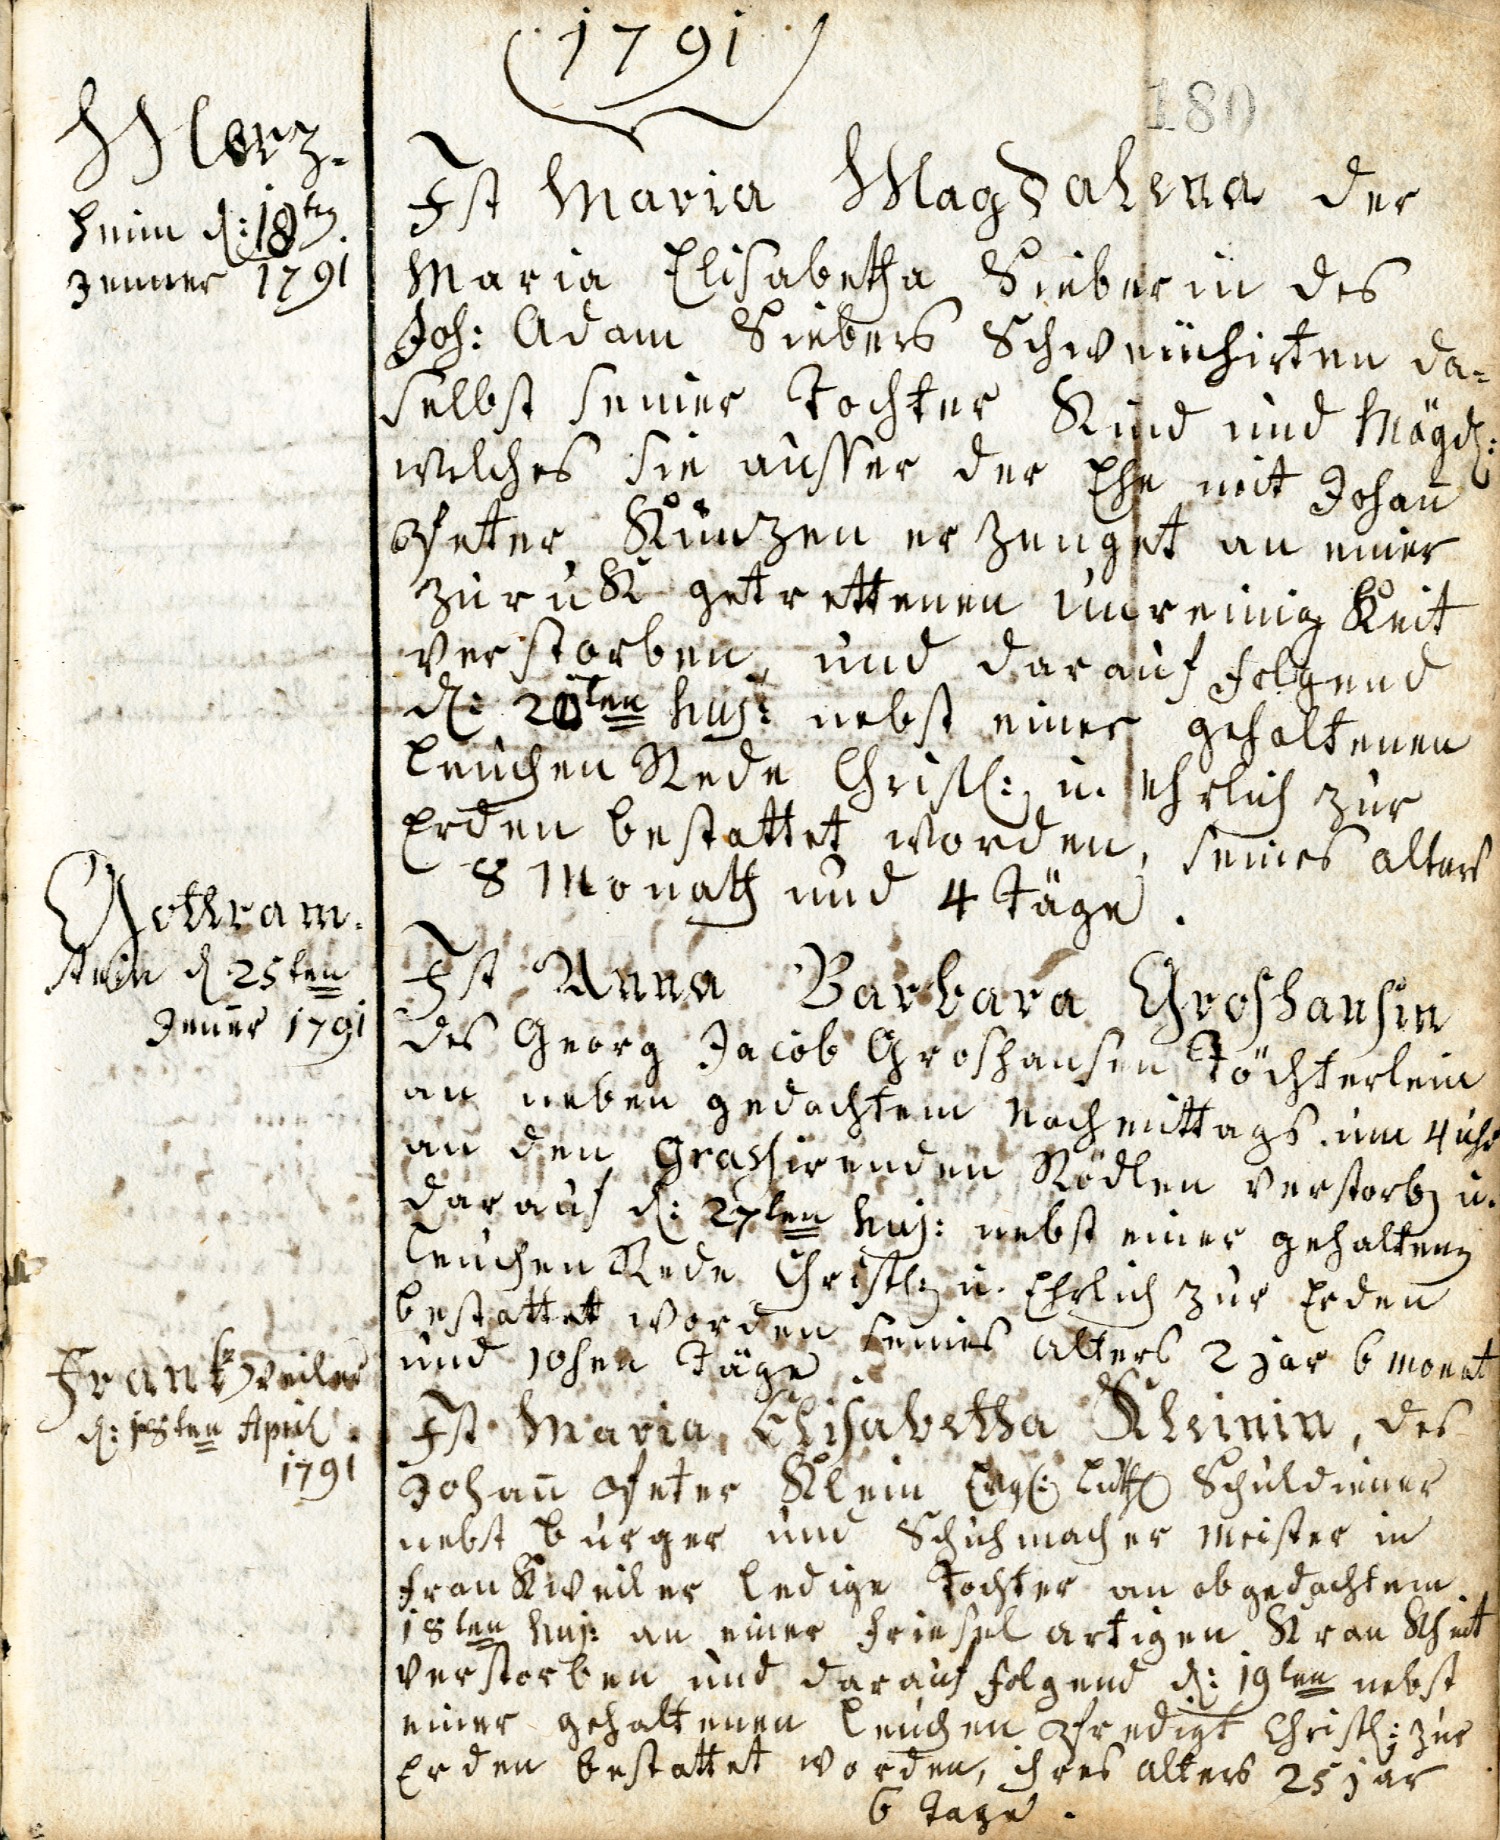 1791
180
Merz-
heim d: 18ten
Jenner 1791
Ist Maria Magdalena der
Maria Elisabetha Sieberin des
Joh: Adam Siebers Schweinhirten da-
selbst seiner Tochter Kind und Mägdl:
welches sie ausser der Ehe mit Johan̄
Peter Kunzen erzeuget an einer
zuruk getrettenen unreinigkeit
verstorben, und darauf folgend
d: 20ten huj: nebst einer gehaltenen
Leichen Rede Christl: u. ehrlich zur
Erden bestattet worden, seines alters
8 Monath und 4 Täge.
Gothram-
stein d 25ten
Jen̄er 1791
Ist Anna Barbara Groshansin
des Georg Jacob Groshansen Töchterlein
an neben gedachtem nachmittags um 4 uhr
an den grassirenden Rödlen verstorben u.
darauf d: 27ten huj: nebst einer gehaltenen
Leichen Rede Christl: u. Ehrlich zur Erden
bestattet worden seines alters 2 jar 6 monat
und 10hen Täge
Frankweiler
d: 18ten April
1791
Ist Maria Elisabetha Kleinin, des
Johan̄ Peter Klein Evgl: Luth Schuldiener
nebst burger und Schuhmacher meister in
Frankweiler ledige Tochter an obgedachtem
18ten huj: an einer Friesel artigen Krankheit
verstorben und darauf folgend d: 19ten nebst
einer gehaltenen Leichen Predigt Christl: zur
Erden bestattet worden, ihres alters 25 jar
6 Tage.